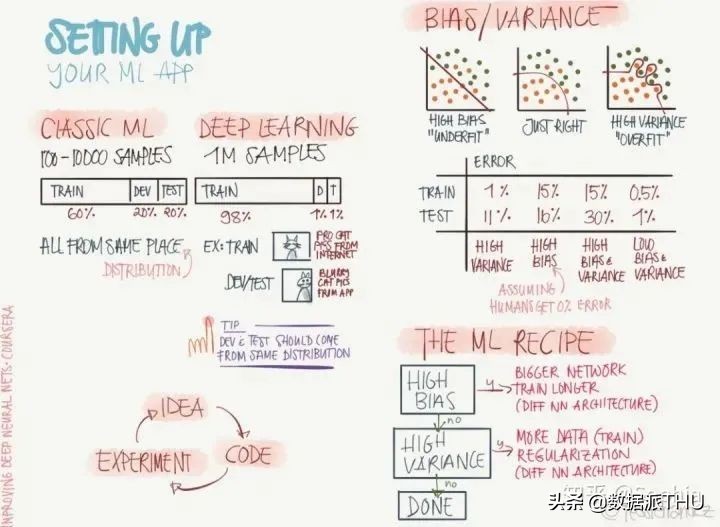 SETTING UP
YOUR ML APP
CLASSIC ML
100-10000 SAMPLES
TRAIN DEV TEST
60% 20% 20%
ALL FROM SAME PLACE
DISTRIBUTION
DEEP LEARNING
1M SAMPLES
TRAIN D T
98% 1% 1%
EX: TRAIN
PRO CAT
PICS FROM
INTERNET
DEV/TEST
BLURRY
CAT PICS
FROM APP
TIP
DEV & TEST SHOULD COME
FROM SAME DISTRIBUTION
IDEA
CODE
EXPERIMENT
IMPROVING DEEP NEURAL NETS · COURSERA
BIAS/VARIANCE
HIGH BIAS
"UNDERFIT"
JUST RIGHT
HIGH VARIANCE
"OVERFIT"
ERROR
TRAIN 1% 15% 15% 0.5%
TEST 11% 16% 30% 1%
HIGH
VARIANCE
HIGH
BIAS
HIGH
BIAS &
VARIANCE
LOW
BIAS &
VARIANCE
ASSUMING
HUMANS GET 0% ERROR
THE ML RECIPE
HIGH
BIAS
y
BIGGER NETWORK
TRAIN LONGER
(DIFF NN ARCHITECTURE)
no
HIGH
VARIANCE
y
MORE DATA (TRAIN)
REGULARIZATION
(DIFF NN ARCHITECTURE)
no
DONE
知乎
头条 @数据派THU